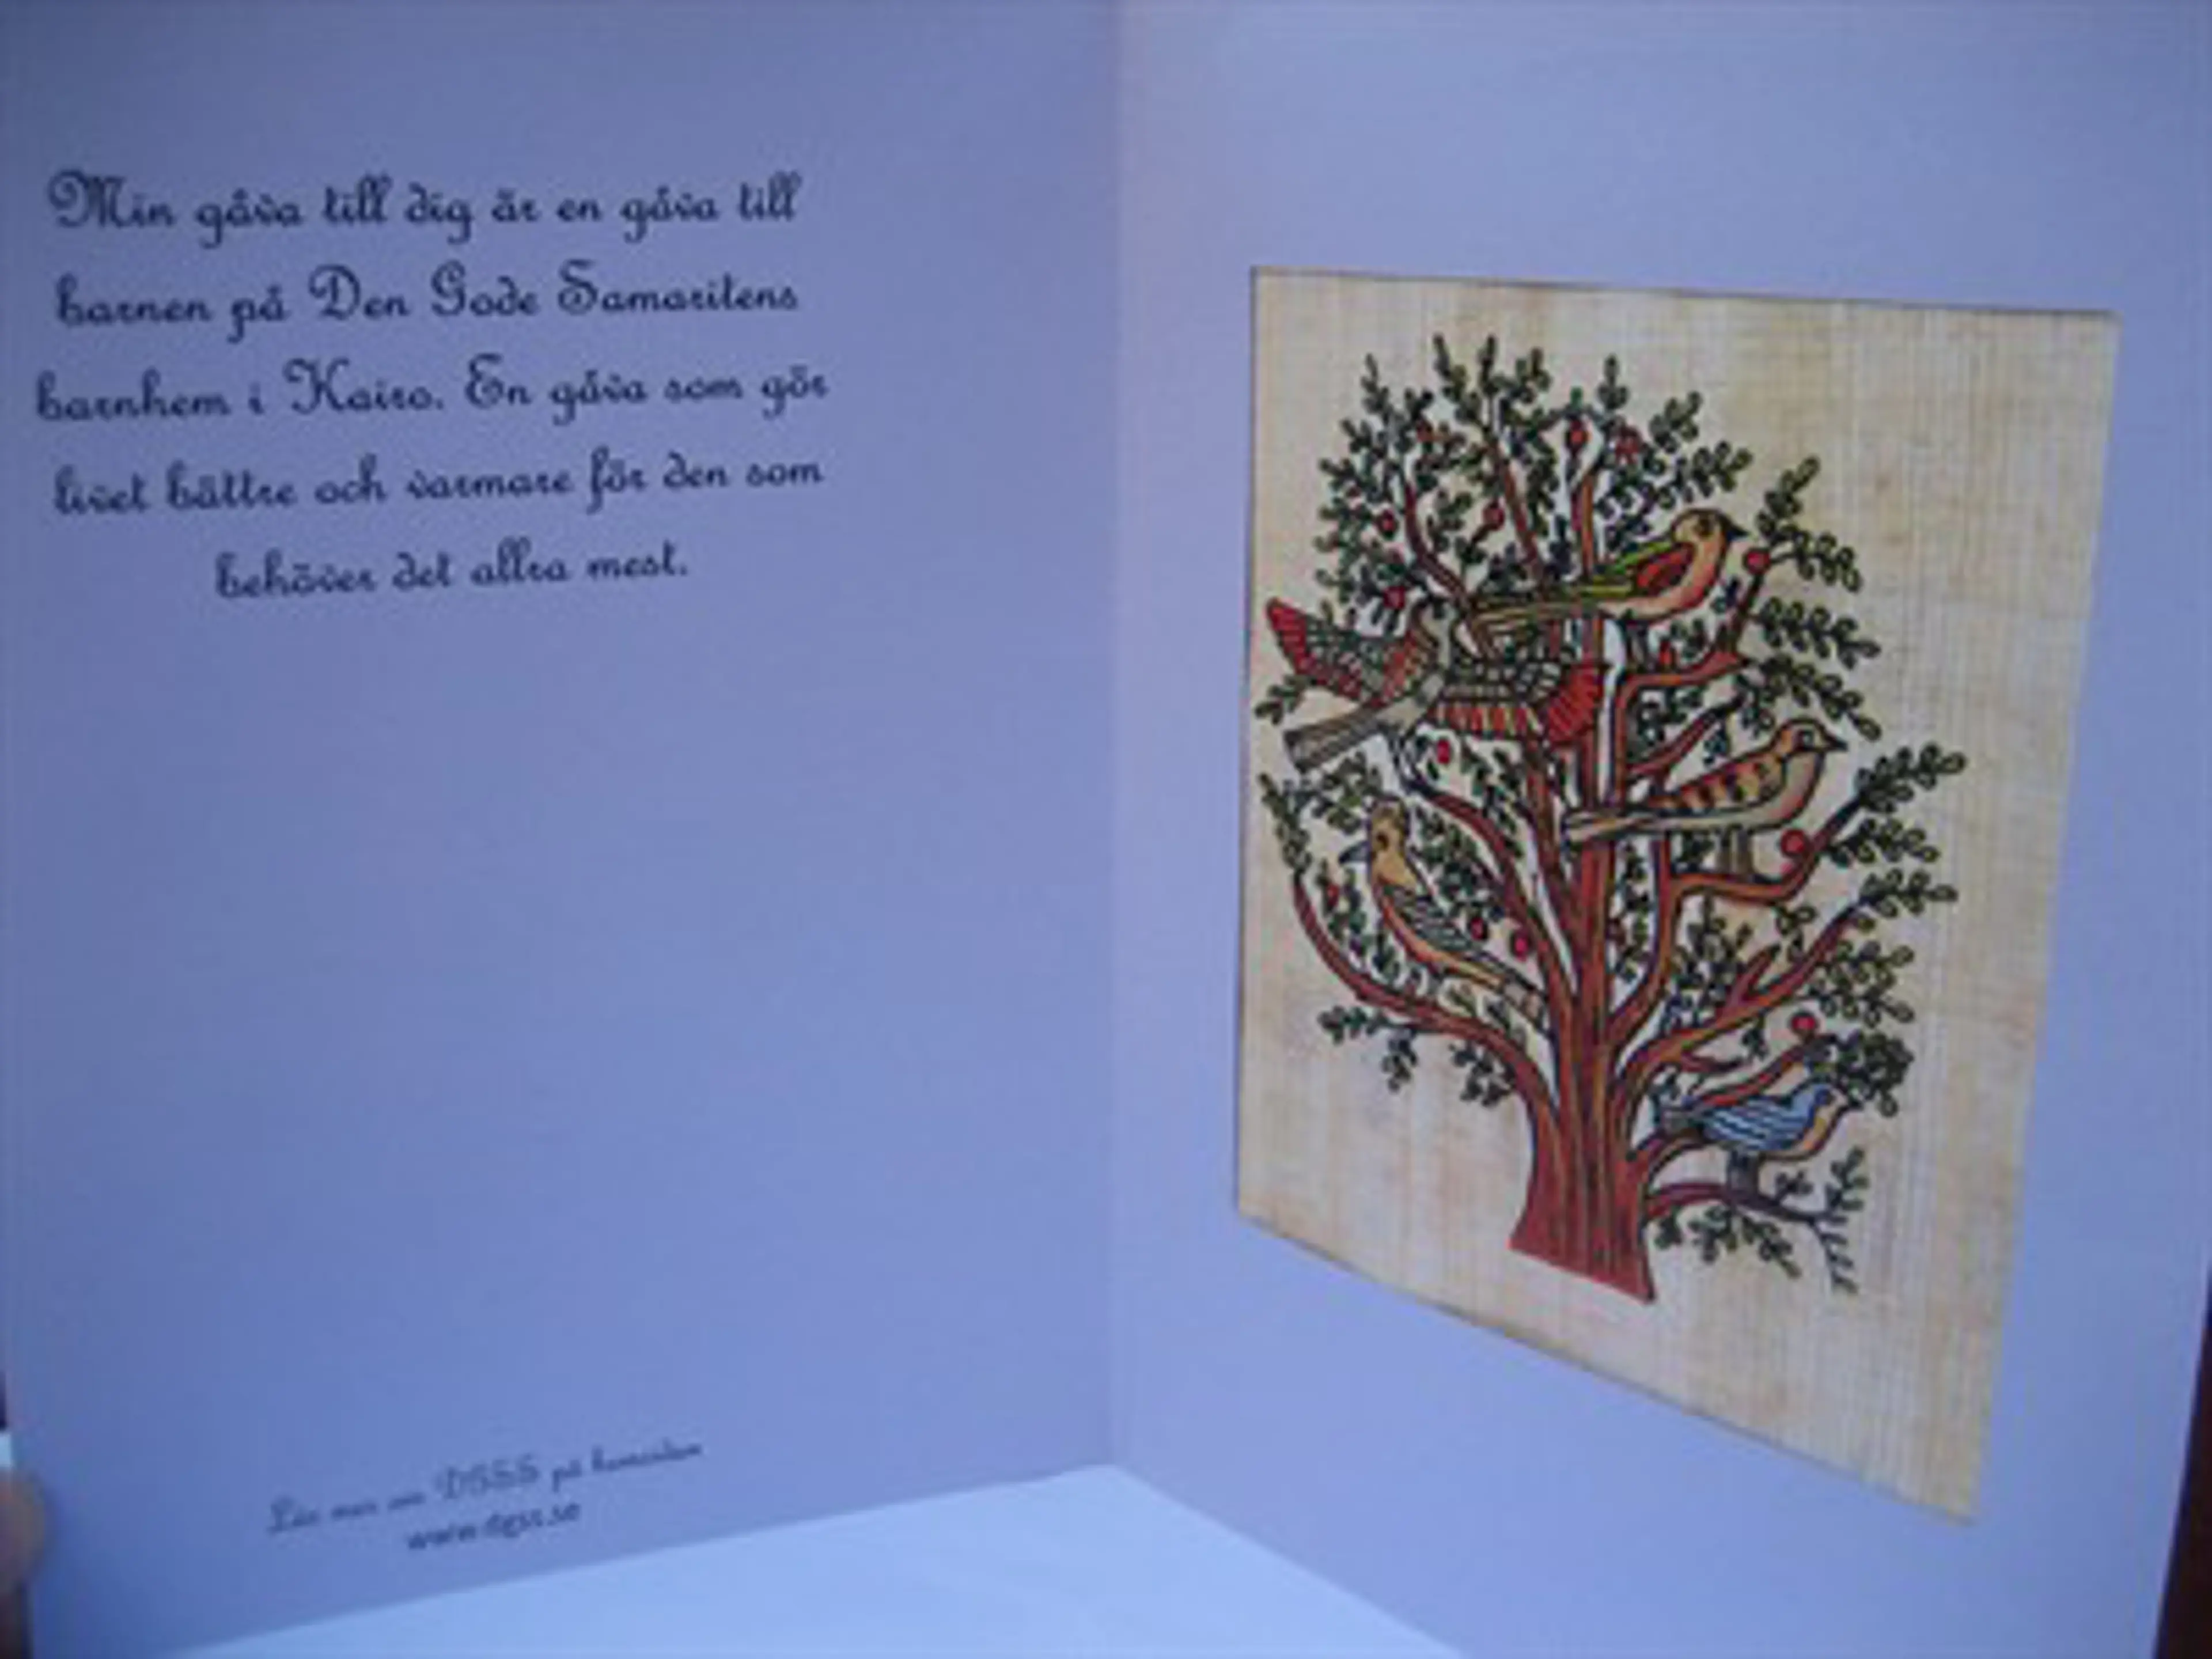 Min gåva till dig är en gåva till
barnen på Den Gode Samaritens
barnhem i Kairo. En gåva som gör
livet bättre och varmare för den som
behöver det allra mest.
Läs mer om DGSS på hemsidan
www.dgss.se